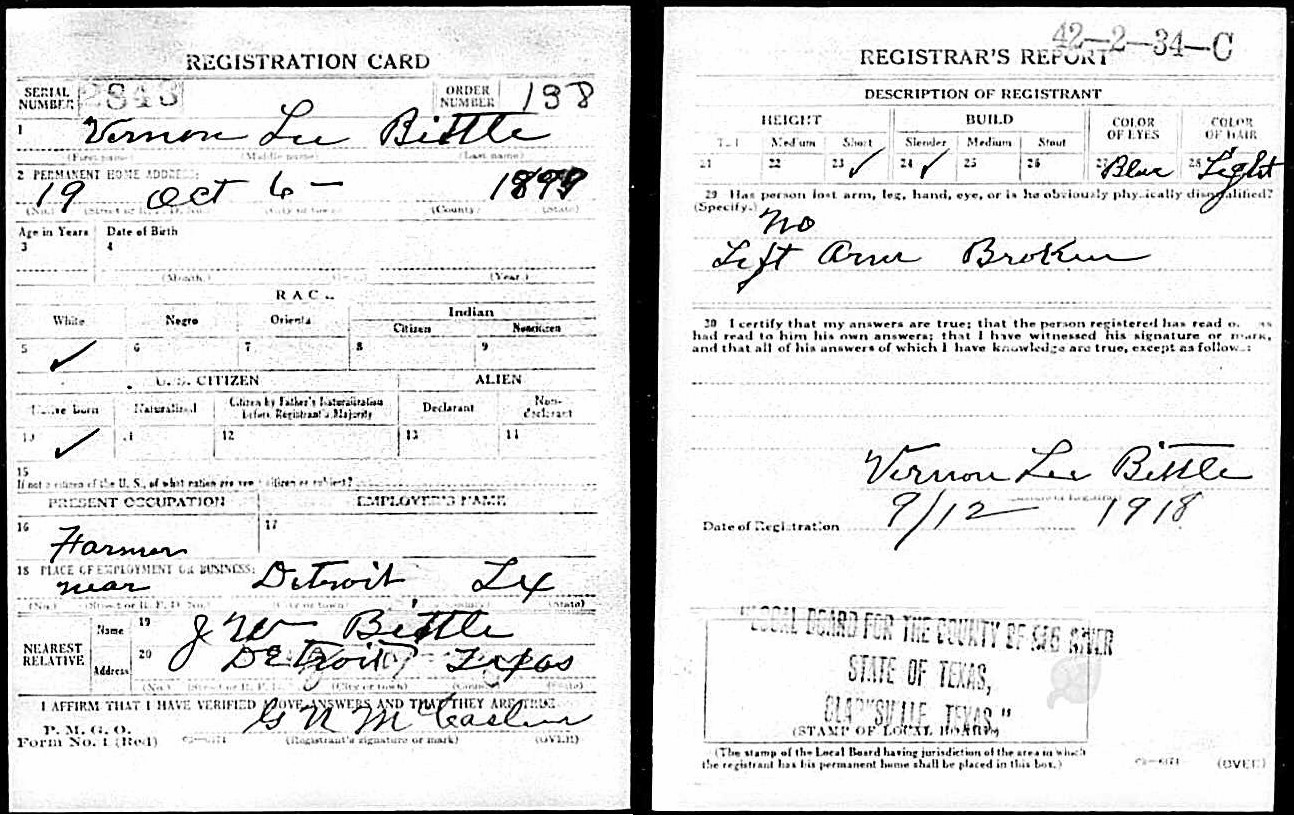 REGISTRATION CARD
SERIAL NUMBER 2843 ORDER NUMBER 138
1 Vernon Lee Bittle
(First name) (Middle name) (Last name)
2 PERMANENT HOME ADDRESS:
19 Oct 6 — 1899
(No.) (Street or R. F. D. No.) (City or town) (County) (State)
Age in Years Date of Birth
3 4
(Month.) (Year.)
RACE
White Negro Oriental Indian
Citizen Noncitizen
5 ✓ 6 7 8 9
U. S. CITIZEN ALIEN
Native Born Naturalized Citizen by Father's Naturalization before Registrant's Majority Declarant Non-declarant
10 ✓ 11 12 13 14
15
If not a citizen of the U. S., of what nation are you a citizen or subject?
PRESENT OCCUPATION EMPLOYER'S NAME
16 Farmer 17
18 PLACE OF EMPLOYMENT OR BUSINESS:
near Detroit Tex
(No.) (Street or R. F. D. No.) (City or town) (County) (State)
NEAREST RELATIVE Name 19 J W Bittle
Address 20 Detroit Texas
(No.) (Street or R. F. D. No.) (City or town) (County) (State)
I AFFIRM THAT I HAVE VERIFIED ABOVE ANSWERS AND THAT THEY ARE TRUE
P. M. G. O.
Form No. 1 (Red) (Registrant's signature or mark) (OVER)
42-2-34-C
REGISTRAR'S REPORT
DESCRIPTION OF REGISTRANT
HEIGHT BUILD COLOR OF EYES COLOR OF HAIR
Tall Medium Short Slender Medium Stout
21 22 23 ✓ 24 ✓ 25 26 27 Blue 28 Light
29 Has person lost arm, leg, hand, eye, or is he obviously physically disqualified?
(Specify.) No
Left Arm Broken
30 I certify that my answers are true; that the person registered has read or has
had read to him his own answers; that I have witnessed his signature or mark,
and that all of his answers of which I have knowledge are true, except as follows:
Vernon Lee Bittle
Date of Registration 9/12 1918
"LOCAL BOARD FOR THE COUNTY OF RED RIVER
STATE OF TEXAS,
CLARKSVILLE, TEXAS."
(STAMP OF LOCAL BOARD)
(The stamp of the Local Board having jurisdiction of the area in which
the registrant has his permanent home shall be placed in this box.)
(OVER)